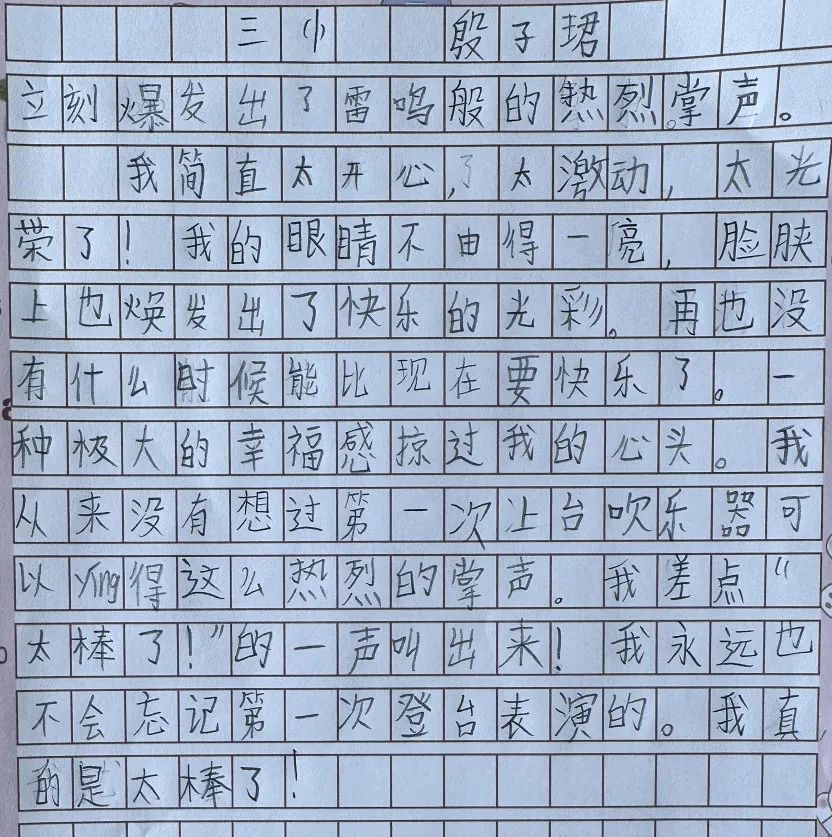 三小 殷子珺
立刻爆发出了雷鸣般的热烈。掌声。
我简直太开心,了太激动,太光
荣了!我的眼睛不由得一亮,脸颊
上也焕发出了快乐的光彩。再也没
有什么时候能比现在要快乐了。一
种极大的幸福感掠过我的心头。我
从来没有想过第一次上台吹乐器可
以ying得这么热烈的掌声。我差点“
太棒了!”的一声叫出来!我永远也
不会忘记第一次登台表演的。我真
的是太棒了!